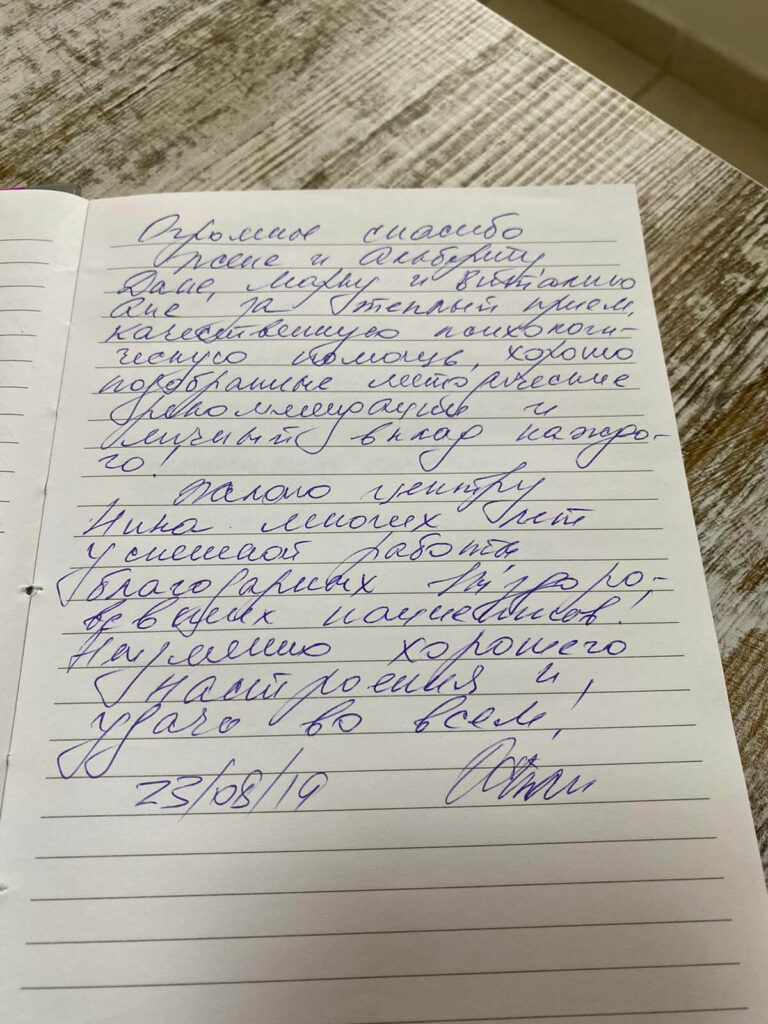 Огромные спасибо
Жене и Альберту,
Дане, Марку и Виталию
Ане за теплый прием,
качественную психологи-
ческую помощь, хорошо
подобранные
рекоммендации и
личный вклад каждо-
го!
Желаю центру
Нина многих лет
успешной работы
благодарных Выздоро-
вевших пациентов!
Неизменно хорошего
настроения и
удачи во всем!
23/08/19